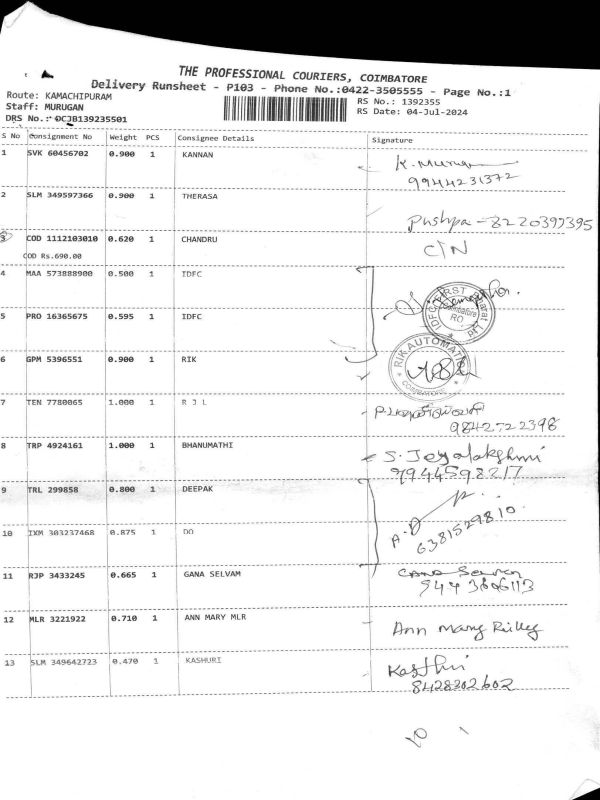 THE PROFESSIONAL COURIERS, COIMBATORE
Delivery Runsheet - P103 - Phone No.:0422-3505555 - Page No.:1
Route: KAMACHIPURAM
RS No.: 1392355
Staff: MURUGAN
RS Date: 04-Jul-2024
DRS No.: DCJB139235501
S No Consignment No Weight PCS Consignee Details Signature
1 SVK 60456702 0.900 1 KANNAN K. Muruga
9944231372
2 SLM 349597366 0.900 1 THERASA
Pushpa - 8220397395
3 COD 1112103010 0.620 1 CHANDRU
CTN
COD Rs.690.00
4 MAA 573888900 0.500 1 IDFC
IDFC FIRST Bharat
Coimbatore
RO
5 PRO 16365675 0.595 1 IDFC
6 GPM 5396551 0.900 1 RIK
RIK AUTOMATION
COIMBATORE
7 TEN 7780065 1.000 1 R J L
9842722398
8 TRP 4924161 1.000 1 BHANUMATHI S. Jeyalakshmi
9944598217
9 TRL 299858 0.800 1 DEEPAK
10 IXM 303237468 0.875 1 DO
A.D
6381529810
11 RJP 3433245 0.665 1 GANA SELVAM Gana Selvan
9443606113
12 MLR 3221922 0.710 1 ANN MARY MLR Ann Mary Rilley
13 SLM 349642723 0.470 1 KASHURI Kasthuri
8428202602